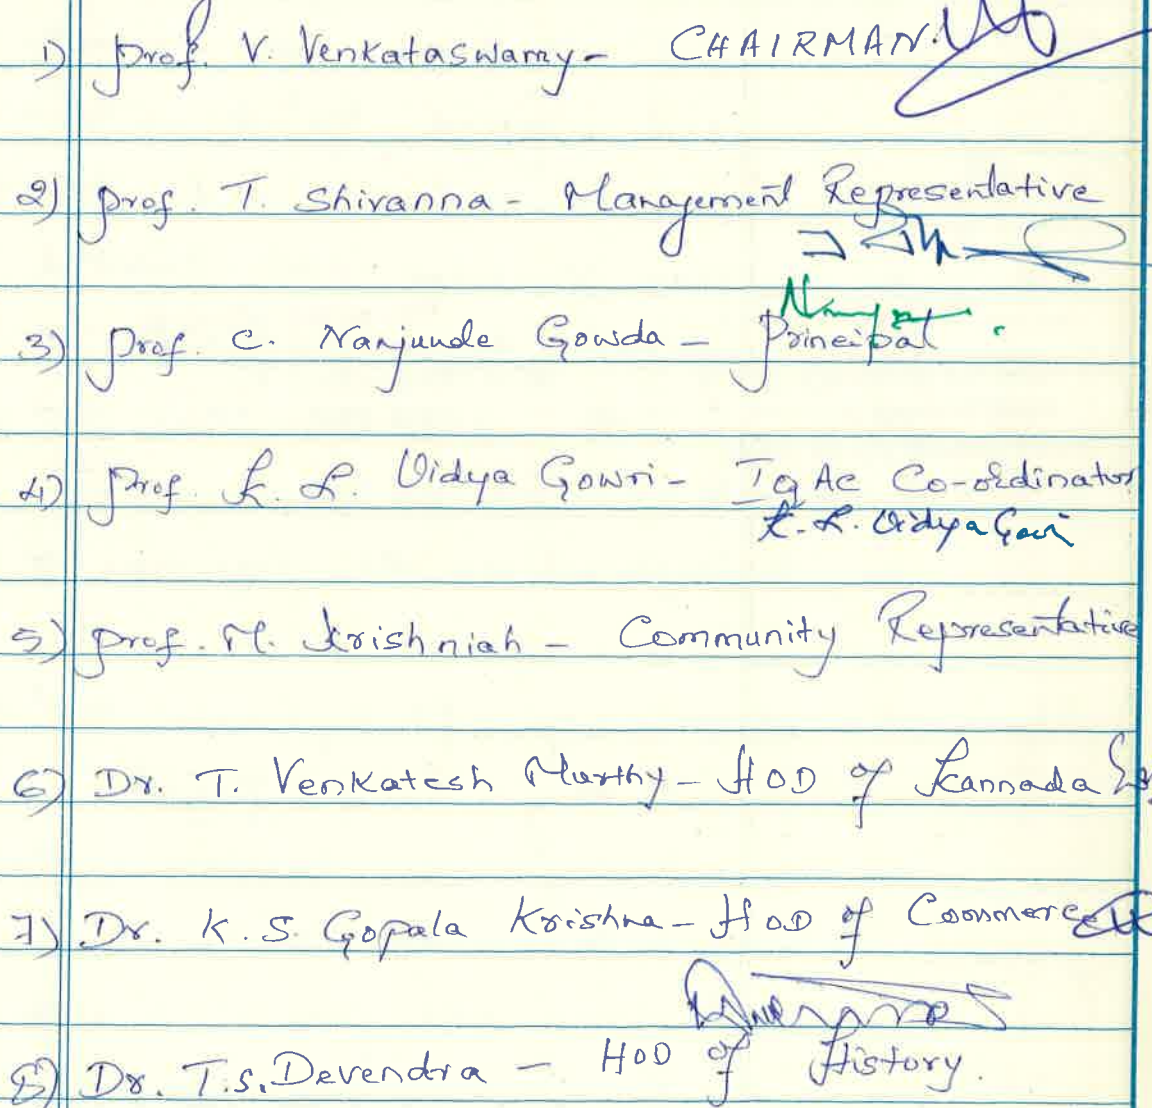 1) Prof. V. Venkataswamy - CHAIRMAN.
2) Prof. T. Shivanna - Management Representative
3) Prof. C. Nanjunde Gowda - Principal
4) Prof. K. L. Vidya Gowri - IQAC Co-ordinator
K. L. Vidya Gowri
5) Prof. M. Krishniah - Community Representative
6) Dr. T. Venkatesh Murthy - HOD of Kannada
7) Dr. K. S. Gopala Krishna - HOD of Commerce
8) Dr. T.S. Devendra - HOD of History.